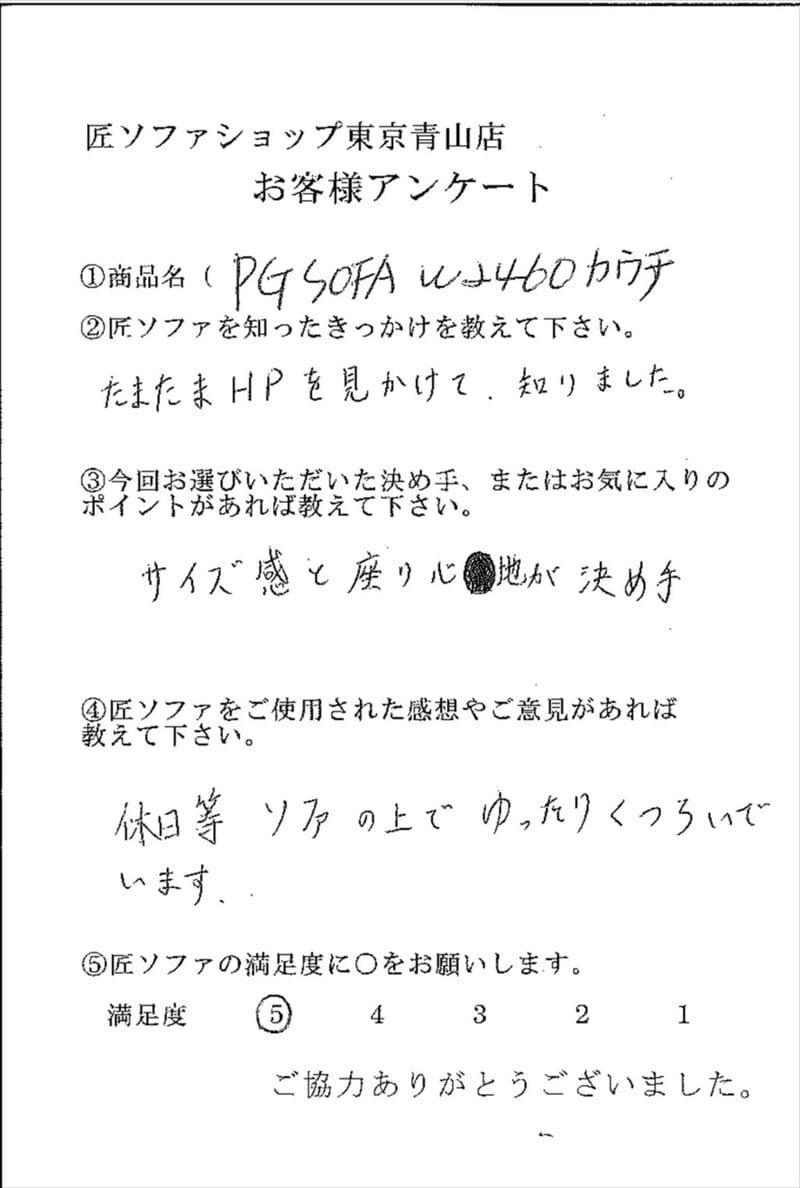 匠ソファショップ東京青山店
お客様アンケート
①商品名（ PG SOFA W2460カウチ
②匠ソファを知ったきっかけを教えて下さい。
たまたまHPを見かけて、知りました。
③今回お選びいただいた決め手、またはお気に入りの
ポイントがあれば教えて下さい。
サイズ感と座り心地が決め手
④匠ソファをご使用された感想やご意見があれば
教えて下さい。
休日等 ソファの上で ゆったりくつろいで
います、
⑤匠ソファの満足度に〇をお願いします。
満足度 5 4 3 2 1
ご協力ありがとうございました。